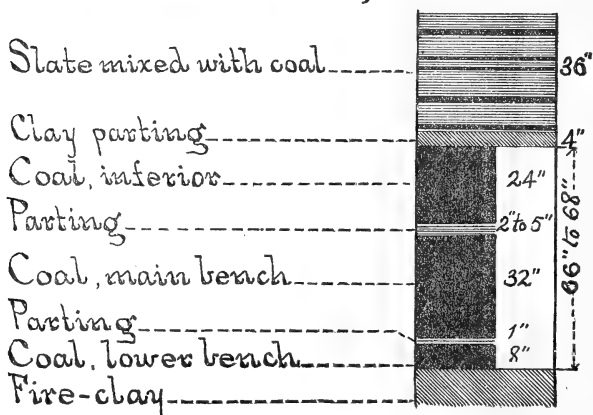 Slate mixed with coal 36"
Clay parting 4"
Coal, inferior 24"
Parting 2" to 5"
Coal, main bench 32"
66" to 68"
Parting 1"
Coal, lower bench 8"
Fire-clay